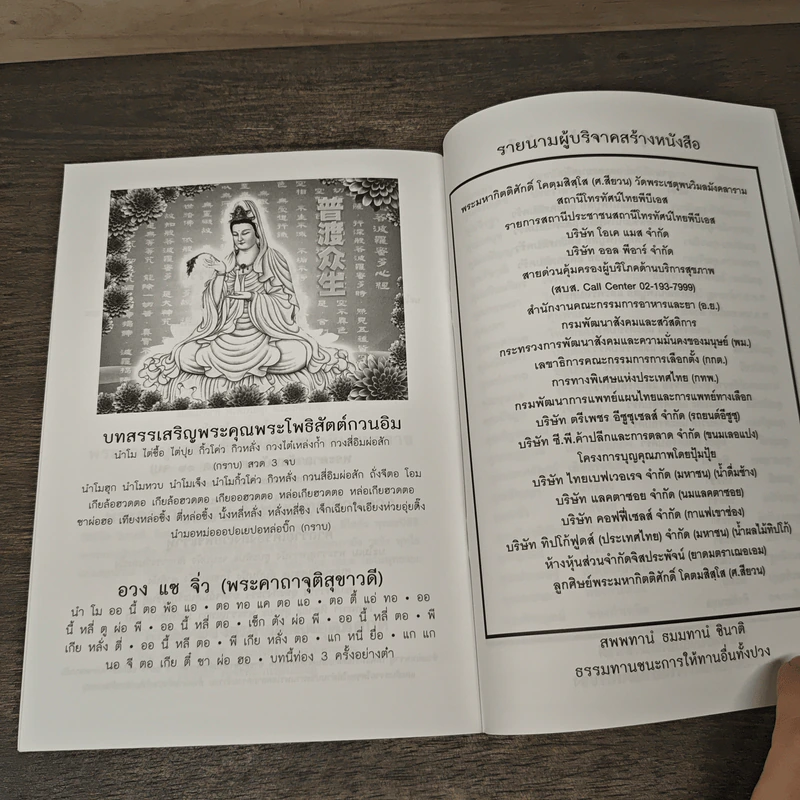 普渡众生
บทสรรเสริญพระคุณพระโพธิสัตต์กวนอิม
นำโม ไต่ซื้อ ไต่ปุย กิ้วโค่ว กิวหลั่ง กวงไต๋เหล่งก้ำ กวงสี่อิมผ่อสัก
(กราบ) สวด 3 จบ
นำโมฮุก นำโมหวบ นำโมเจ็ง นำโมกิ้วโค่ว กิวหลั่ง กวนสี่อิมผ่อสัก ถั่งจีตอ โอม
เกียล้อฮวดตอ เกียล้อฮวดตอ เกียออฮวดตอ หล่อเกียฮวดตอ หล่อเกียฮวดตอ
ซาผ่อฮอ เทียงหล่อซิ้ง ตี่หล่อซิ้ง นั้งหลี่หลั่ง หลั่งหลี่ซิง เจ็กเฉียกใจเอียงห่วยอุ่ยติ๊ง
นำมอหม่อออปอเยปอหล่อบิ๊ก (กราบ)
อวง แซ จิ่ว (พระคาถาจุติสุขาวดี)
นำ โม ออ นี้ ตอ พ้อ แอ • ตอ ทอ แค ตอ แอ • ตอ ตี้ แอ่ ทอ • ออ
นี้ หลี่ ตู ผ่อ พี • ออ นี้ หลี่ ตอ • เซ็ก ตัง ผ่อ พี • ออ นี้ หลี่ ตอ • พี
เกีย หลั่ง ตี่ • ออ นี้ หลี ตอ • พี เกีย หลั่ง ตอ • แก หนี่ ยี่อ • แก แก
นอ จี ตอ เกีย ตี๋ ซา ผ่อ ฮอ • บทนี้ท่อง 3 ครั้งอย่างต่ำ
รายนามผู้บริจาคสร้างหนังสือ
พระมหากิตติศักดิ์ โคตมสิสฺโส (ศ.สียวน) วัดพระเชตุพนวิมลมังคลาราม
สถานีโทรทัศน์ไทยพีบีเอส
รายการสถานีประชาชนสถานีโทรทัศน์ไทยพีบีเอส
บริษัท โอเค แมส จำกัด
บริษัท ออล พีอาร์ จำกัด
สายด่วนคุ้มครองผู้บริโภคด้านบริการสุขภาพ
(สบส. Call Center 02-193-7999)
สำนักงานคณะกรรมการอาหารและยา (อ.ย.)
กรมพัฒนาสังคมและสวัสดิการ
กระทรวงการพัฒนาสังคมและความมั่นคงของมนุษย์ (พม.)
เลขาธิการคณะกรรมการการเลือกตั้ง (กกต.)
การทางพิเศษแห่งประเทศไทย (กทพ.)
กรมพัฒนาการแพทย์แผนไทยและการแพทย์ทางเลือก
บริษัท ตรีเพชร อีซูซุเซลส์ จำกัด (รถยนต์อีซูซุ)
บริษัท ซี.พี.ค้าปลีกและการตลาด จำกัด (ขนมเลอแปง)
โครงการบุญคุณภาพโดยปุ้มปุ้ย
บริษัท ไทยเบฟเวอเรจ จำกัด (มหาชน) (น้ำดื่มช้าง)
บริษัท แลคตาซอย จำกัด (นมแลคตาซอย)
บริษัท คอฟฟี่เซลส์ จำกัด (กาแฟเขาช่อง)
บริษัท ทิปโก้ฟูดส์ (ประเทศไทย) จำกัด (มหาชน) (น้ำผลไม้ทิปโก้)
ห้างหุ้นส่วนจำกัดจิสประพัจน์ (ยาดมตราเฌอเอม)
ลูกศิษย์พระมหากิตติศักดิ์ โคตมสิสฺโส (ศ.สียวน)
สพฺพทานํ ธมฺมทานํ ชินาติ
ธรรมทานชนะการให้ทานอื่นทั้งปวง